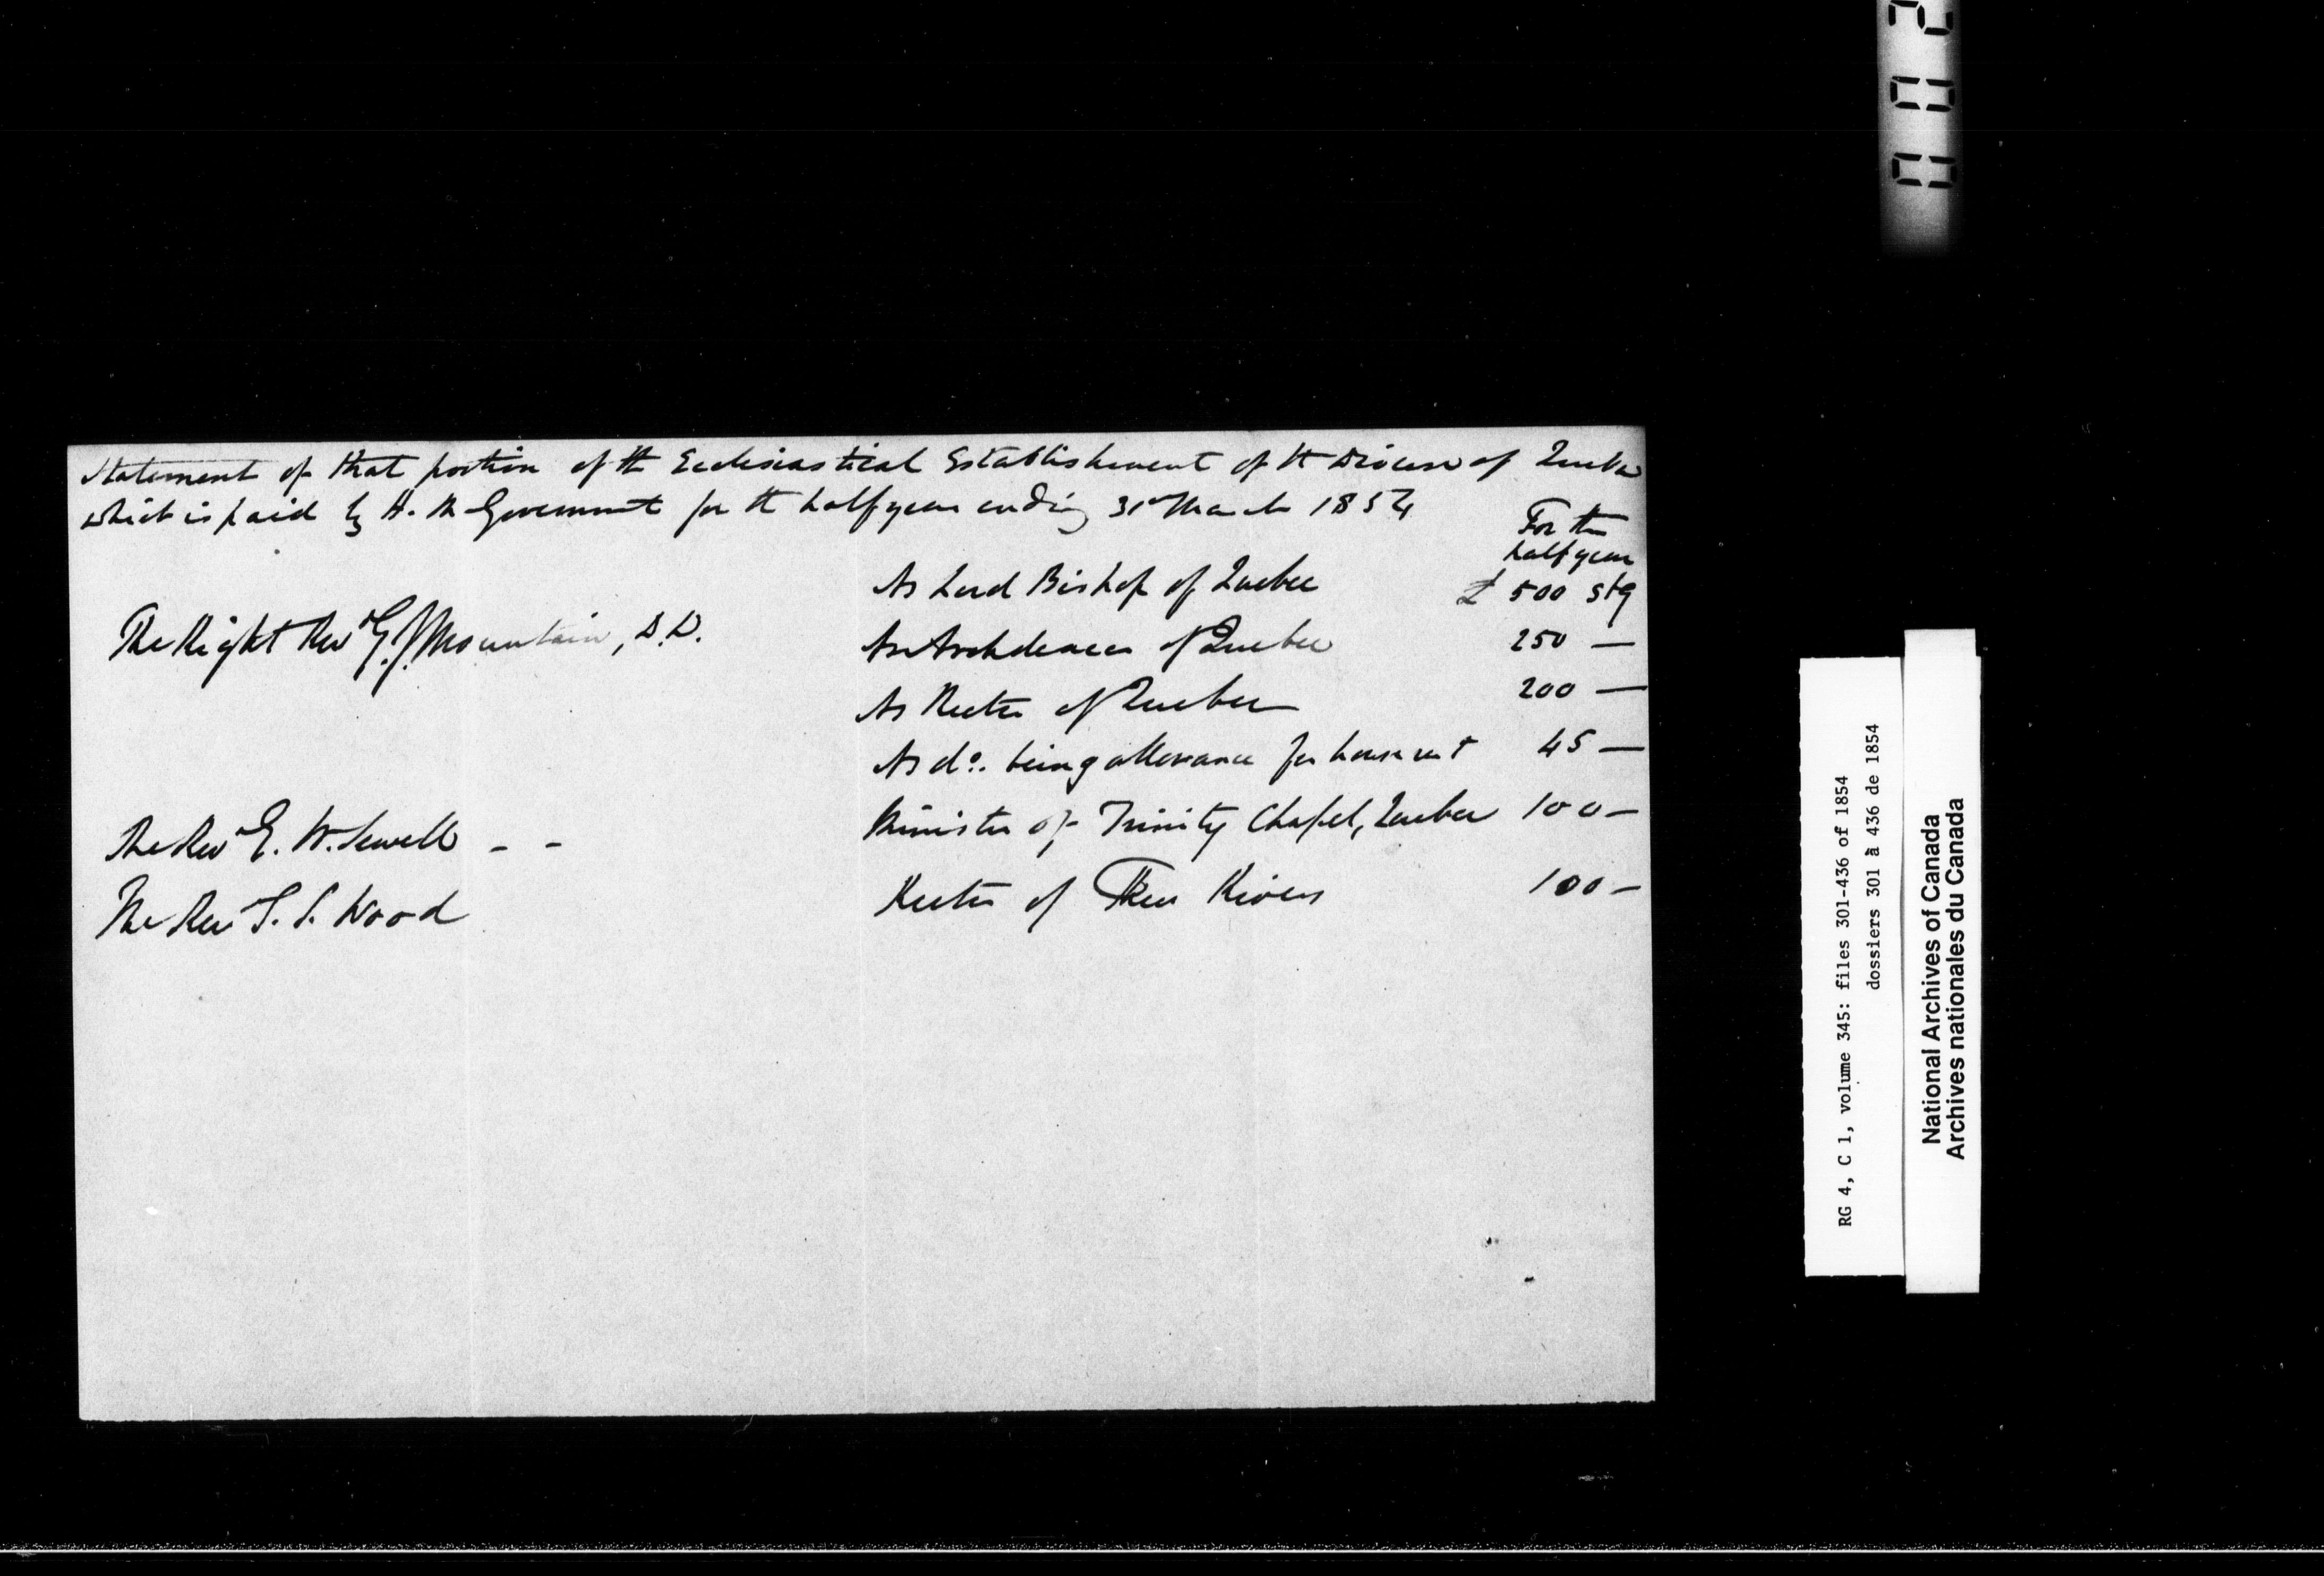 Statement of that portion of the Ecclesiastical Establishment of the Diocese of Quebec
which is paid by H. M. Government for the half year ending 31st March 1854
For the
half year
As Lord Bishop of Quebec £ 500 stg
The Right Revd G. J. Mountain, D.D.
As Archdeacon of Quebec 250 —
As Rector of Quebec 200 —
As do. being allowance for house rent 45 —
The Revd E. W. Sewell - - Minister of Trinity Chapel, Quebec 100 —
The Rev S. S. Wood Rector of Three Rivers 100 —
RG 4, C 1, volume 345: files 301-436 of 1854
dossiers 301 à 436 de 1854
National Archives of Canada
Archives nationales du Canada